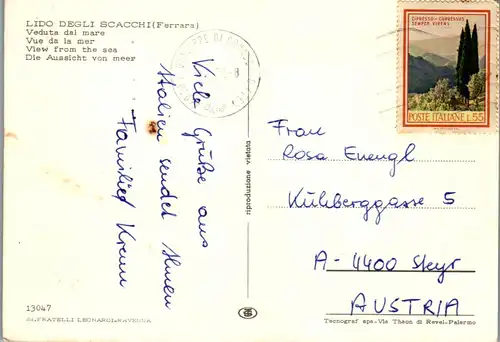 LIDO DEGLI SCACCHI (Ferrara)
Veduta dal mare
Vue da la mer
View from the sea
Die Aussicht von meer
Viele Grüße aus
Italien sendet Ihnen
Familie Krenn
13047
FRATELLI LEONARDI-RAVENNA
riproduzione vietata
CIPRESSO - CUPRESSUS
SEMPER VIRENS
POSTE ITALIANE L.55
Frau
Rosa Enengl
Kühberggasse 5
A-4400 Steyr
AUSTRIA
Tecnograf spa-Via Thaon di Revel-Palermo